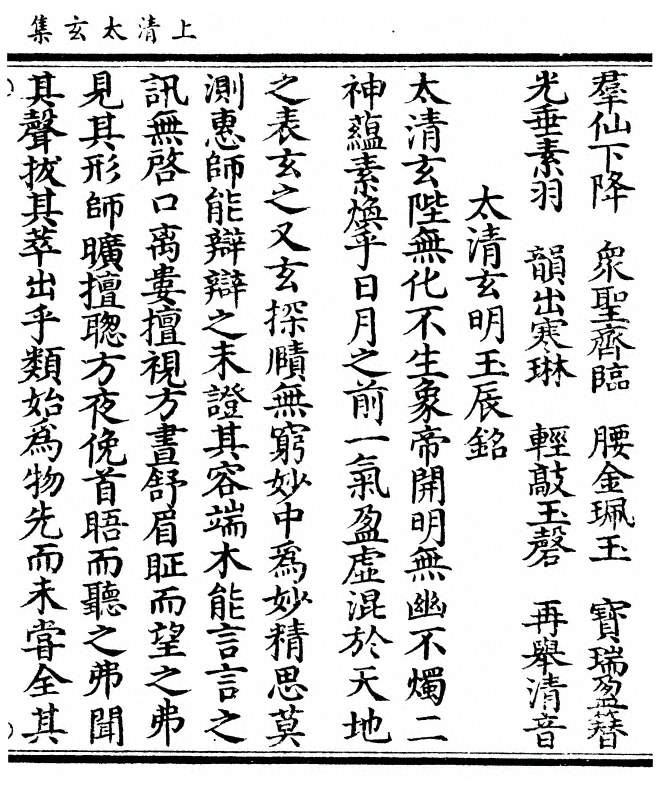 上清太玄集
羣仙下降　衆聖齊臨　腰金珮玉　寶瑞盈簮
光垂素羽　韻出寒琳　輕敲玉磬　再舉清音
太清玄明玉辰銘
太清玄陛無化不生象帝開明無幽不燭二
神蘊素煥乎日月之前一氣盈虛混於天地
之表玄之又玄探賾無窮妙中爲妙精思莫
測惠師能辯辯之未證其容端木能言言之
訊無啓口离婁擅視方晝舒眉眐而望之弗
見其形師曠擅聦方夜俛首晤而聽之弗聞
其聲拔其萃出乎類始爲物先而未甞全其